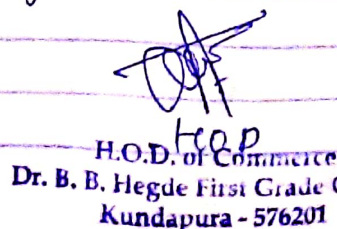 HOD
H.O.D. of Commerce
Dr. B. B. Hegde First Grade C
Kundapura - 576201